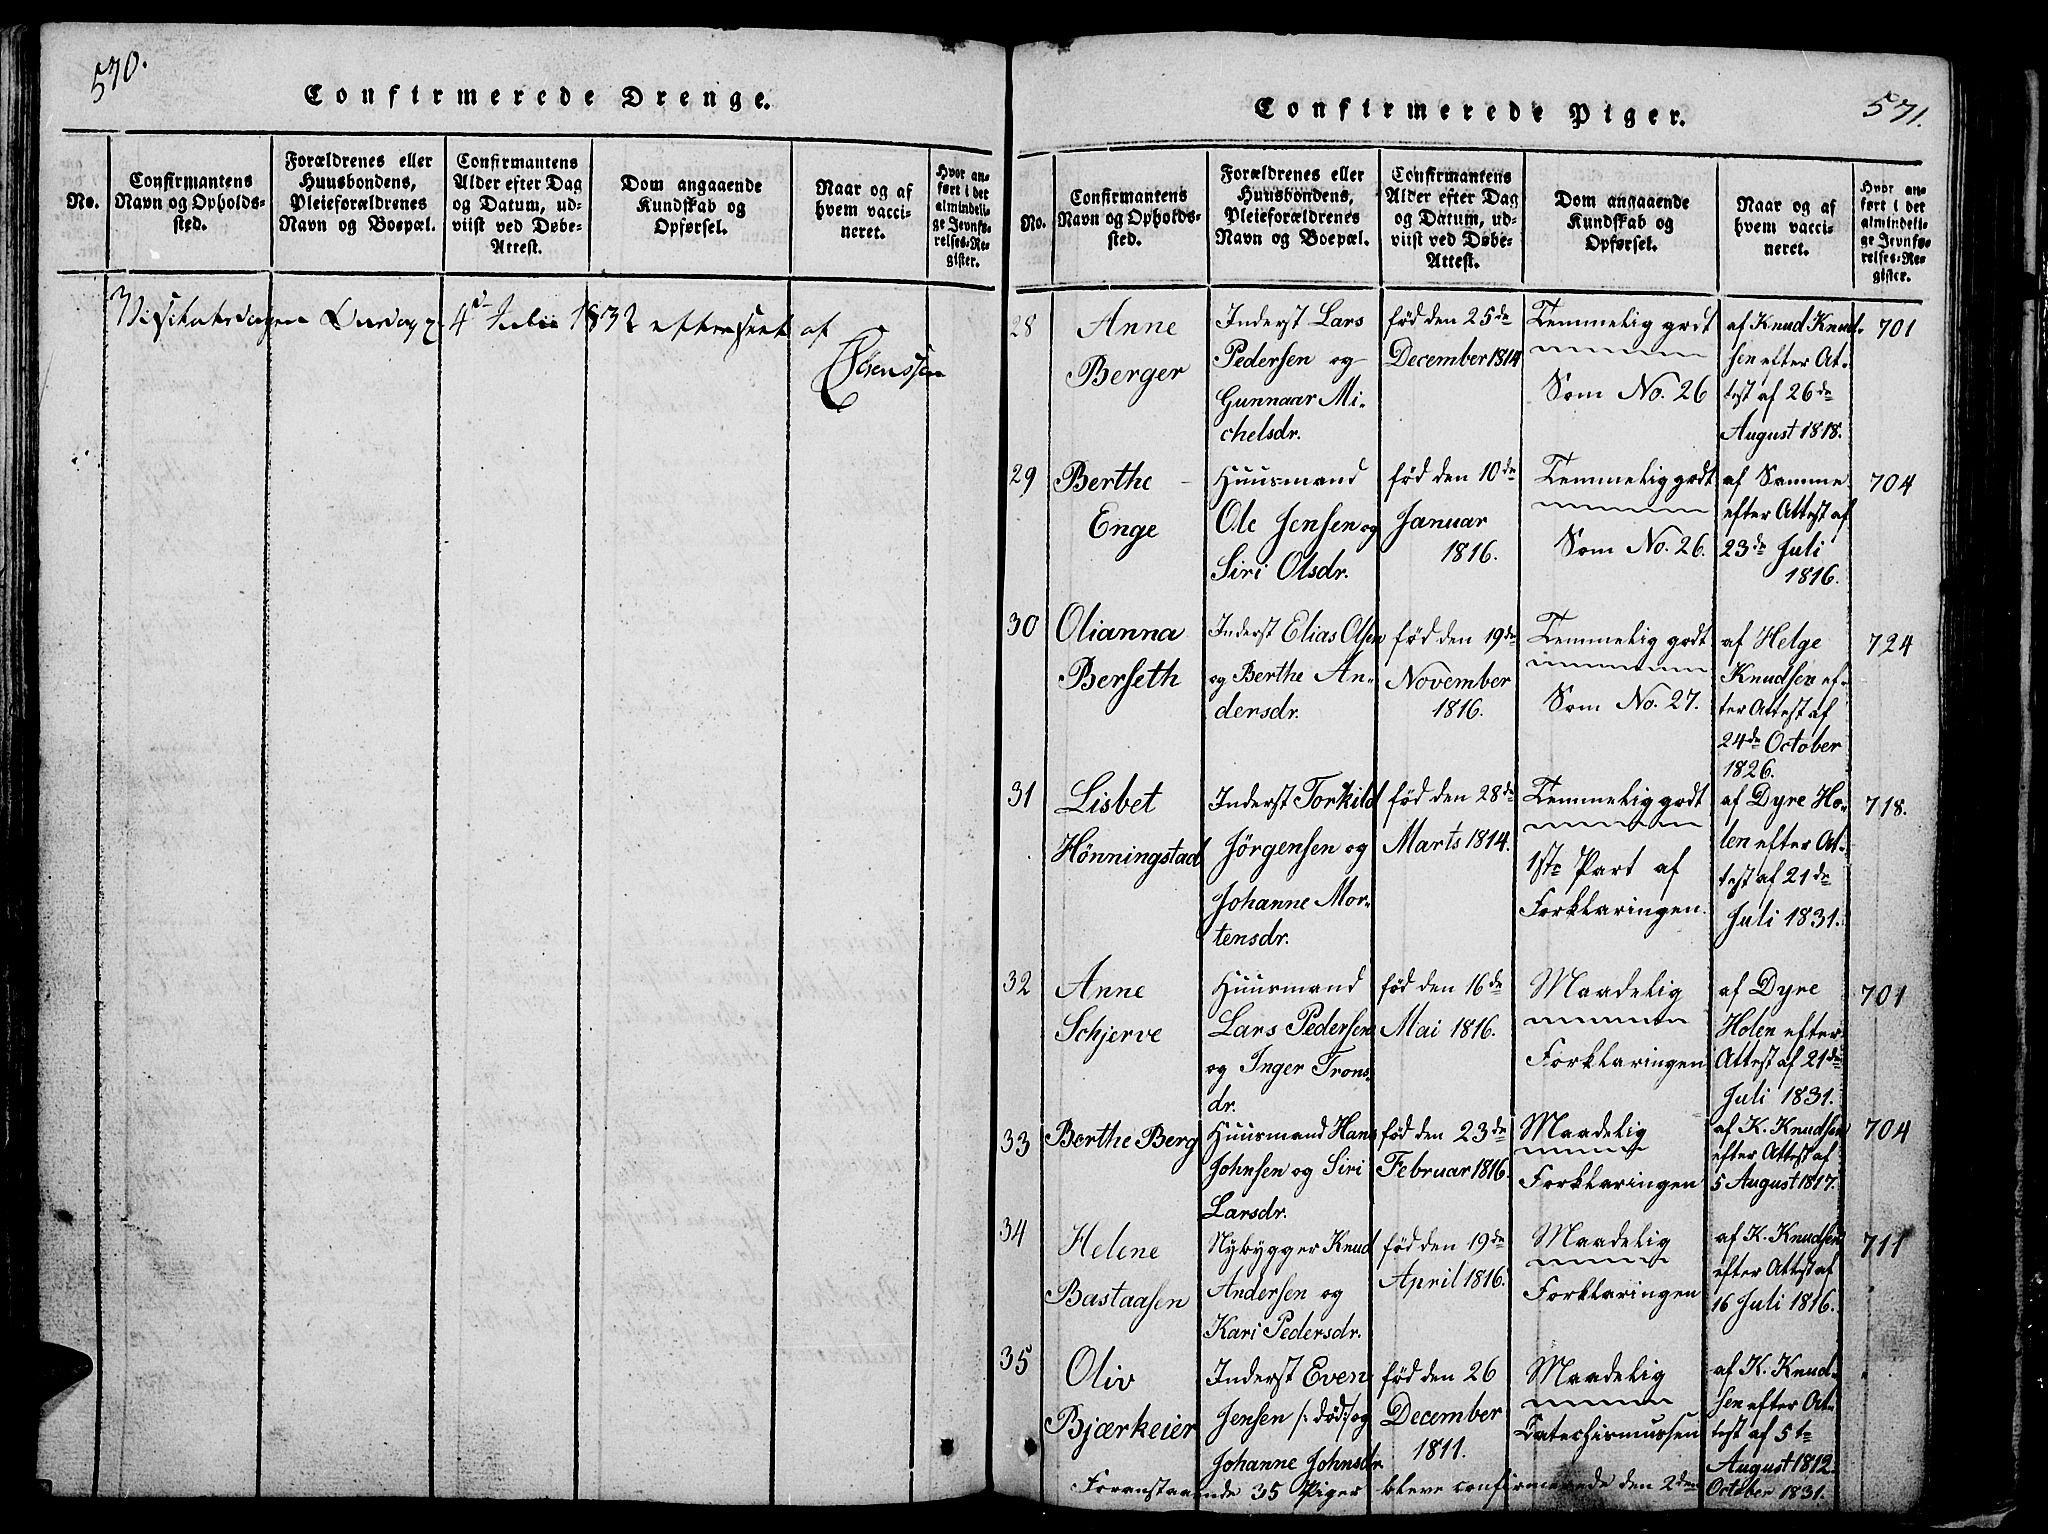 570.
Confirmerede Drenge.
No.
Confirmantens
Navn og Opholds-
sted.
Forældrenes eller
Huusbondens,
Pleieforældrenes
Navn og Boepæl.
Confirmantens
Alder efter Dag
og Datum, ud-
viist ved Døbe-
Attest.
Dom angaaende
Kundskab og
Opførsel.
Naar og af
hvem vacci-
neret.
Hvor an-
ført i det
almindeli-
ge Jevnfø-
relses-Re-
gister.
4de Julii 1832 efterseet af
571.
Confirmerede Piger.
No.
Confirmantens
Navn og Opholds-
sted.
Forældrenes eller
Huusbondens,
Pleieforældrenes
Navn og Boepæl.
Confirmantens
Alder efter Dag
og Datum, ud-
viist ved Døbe-
Attest.
Dom angaaende
Kundskab og
Opførsel.
Naar og af
hvem vacci-
neret.
Hvor an-
ført i det
almindeli-
ge Jevnfø-
relses-Re-
gister.
28
Anne
Berger
Inderst Lars
Pedersen og
Gunnaar Mi-
chelsdr.
fød den 25de
December 1814
Temmelig godt
Som No. 26
af Knud Knud-
sen efter At-
test af 26de
August 1818.
701
29
Berthe
Enge
Huusmand
Ole Jensen og
Siri Olsdr.
fød den 10de
Januar
1816.
Temmelig godt
Som No. 26.
af Samme
efter Attest af
23de Juli
1816.
704
30
Olianna
Berseth
Inderst Elias Olsen
og Berthe An-
dersdr.
fød den 19de
November
1816.
Temmelig godt
Som No. 27.
af Helge
Knudsen ef-
ter Attest af
24de October
1826.
724
31
Lisbet
Hönningstad
Inderst Torkild
Jörgensen og
Johanne Mor-
tensdr.
fød den 28de
Marts 1814.
Temmelig godt
1ste Part af
Forklaringen.
af Dyre Ho-
len efter At-
test af 21de
Juli 1831.
718.
32
Anne
Schjerve
Huusmand
Lars Pedersen
og Inger Trons-
dr.
fød den 16de
Mai 1816.
Maadelig
Forklaringen
af Dyre
Holen efter
Attest af 21de
Juli 1831.
701
33
Berthe Berg
Huusmand Hans
Johnsen og Siri
Larsdr.
fød den 23de
Februar 1816.
Maadelig
Forklaringen
af K. Knudsen
efter Attest af
5 August 1817.
704
34
Helene
Bastaasen
Nybygger Knud
Andersen og
Kari Pedersdr.
fød den 19de
April 1816.
Maadelig
Forklaringen
af K. Knudsen
efter Attest af
16 Juli 1816.
711
35
Oliv
Bjærkeier
Inderst Even
Jensen /: död :/ og
Johanne Johnsdr
fød den 26
December
1811.
Maadelig
Catechismussen
af K. Knud-
sen efter At-
test af 5te
August 1812.
Foranstaaende 35 Piger bleve confirmerede den 2den October 1831.